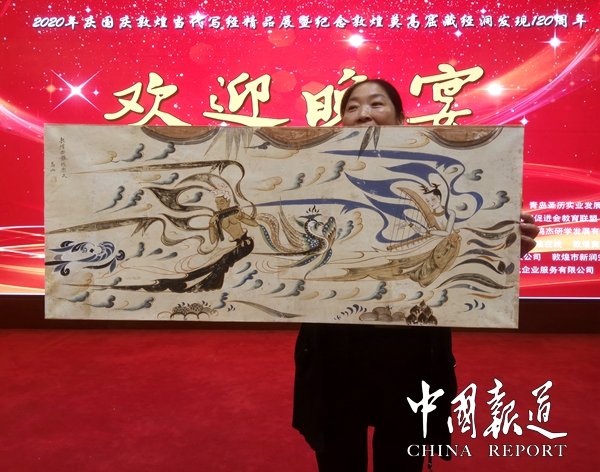 2020年庆国庆敦煌当代写经精品展暨纪念敦煌莫高窟藏经洞发现120周年
欢迎晚宴
青岛圣历实业发展
促进会教育联盟
杰研学发展有
公司 敦煌市新润
企业服务有限公司
中國報道
CHINA REPORT